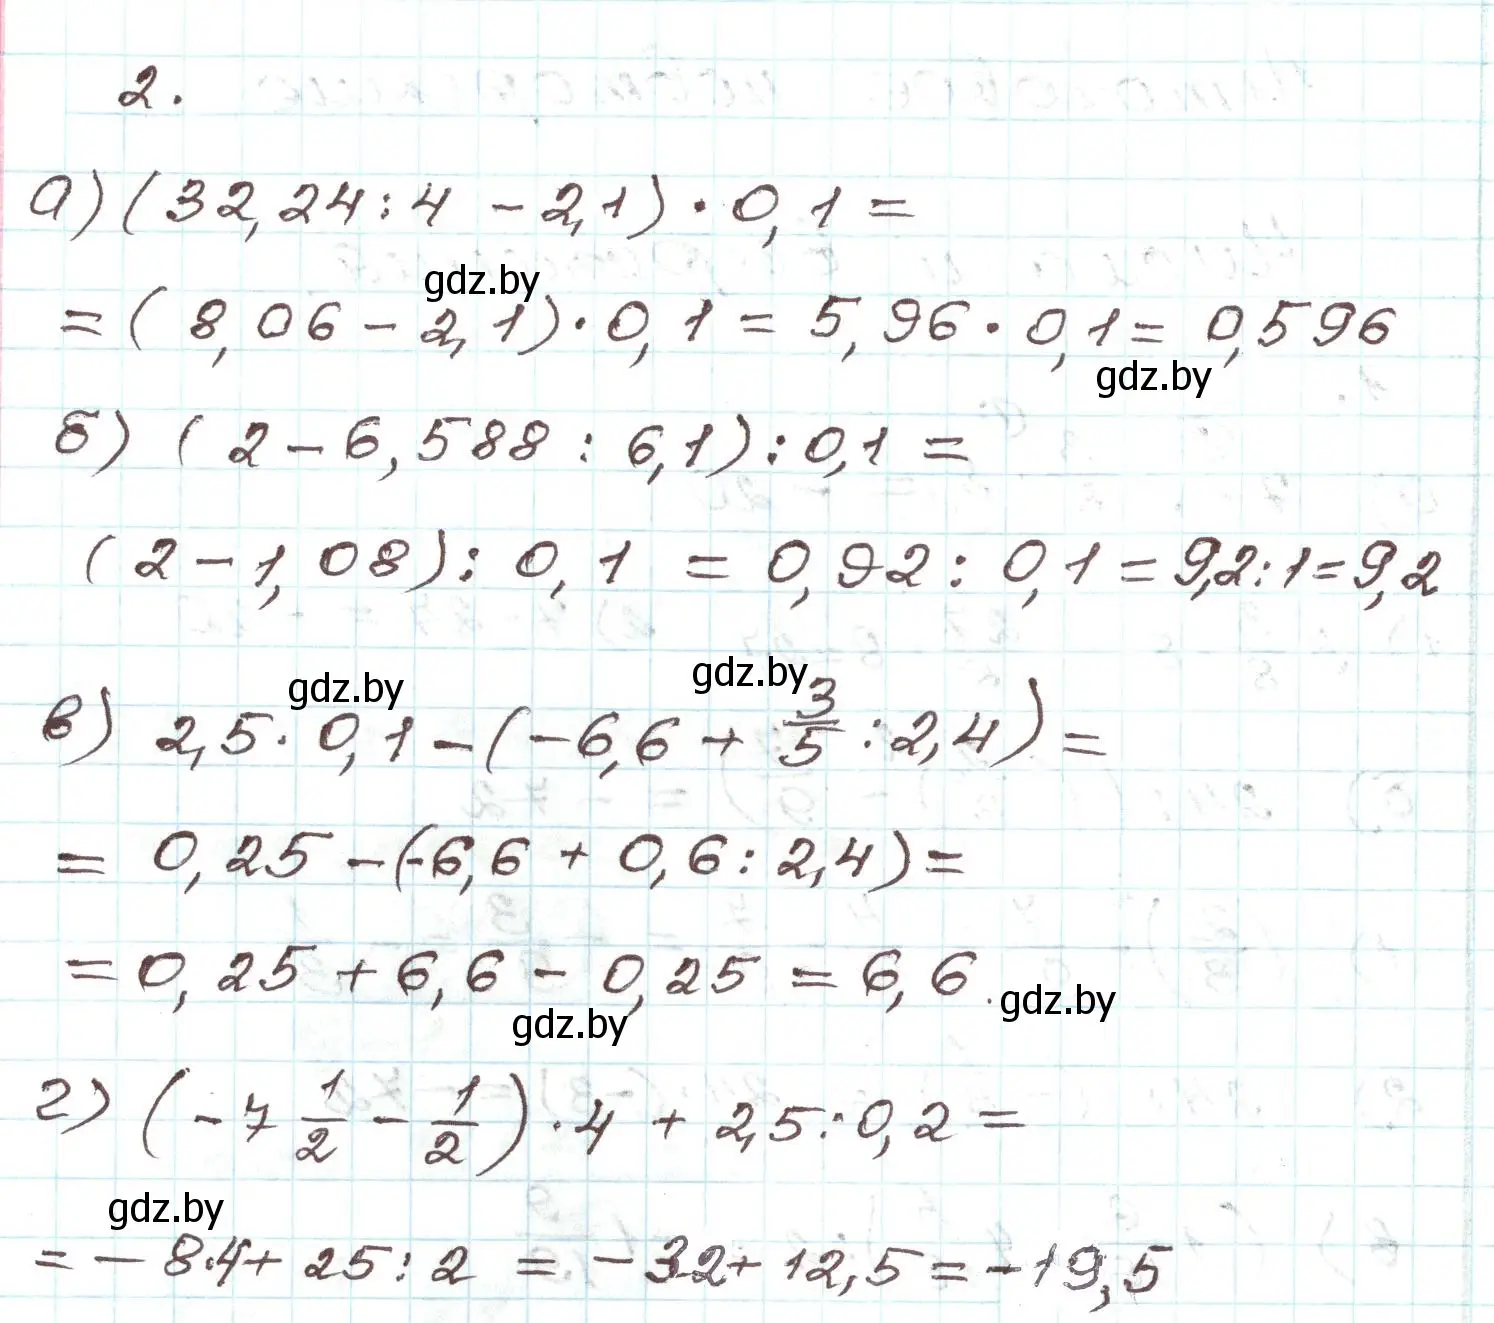 2.
а) (32,24 : 4 - 2,1) · 0,1 =
gdz.by
= (8,06 - 2,1) · 0,1 = 5,96 · 0,1 = 0,596
gdz.by
б) (2 - 6,588 : 6,1) : 0,1 =
(2 - 1,08) : 0,1 = 0,92 : 0,1 = 9,2 : 1 = 9,2
gdz.by gdz.by
в) 2,5 · 0,1 - (-6,6 + 3/5 : 2,4) =
= 0,25 - (-6,6 + 0,6 : 2,4) =
= 0,25 + 6,6 - 0,25 = 6,6
gdz.by gdz.by
г) (-7 1/2 - 1/2) · 4 + 2,5 : 0,2 =
gdz.by
= - 8·4 + 25 : 2 = -32 + 12,5 = -19,5